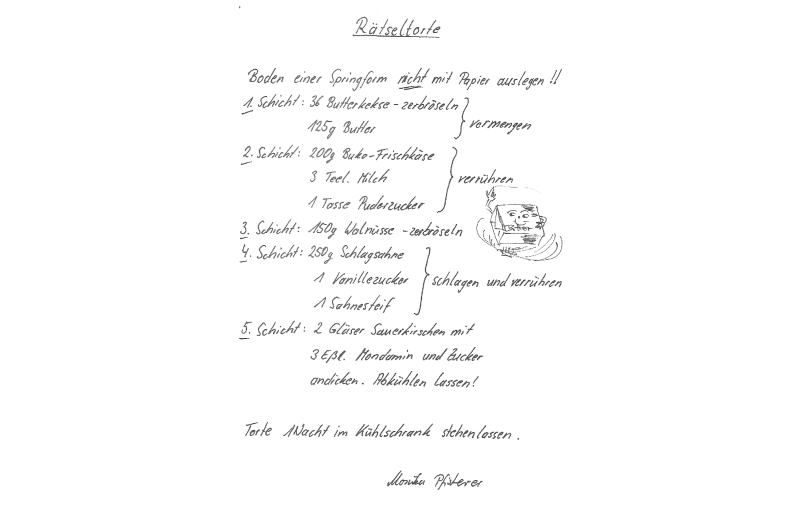 Rätseltorte
Boden einer Springform nicht mit Papier auslegen !!
1. Schicht: 36 Butterkekse - zerbröseln
125g Butter
vermengen
2. Schicht: 200g Buko-Frischkäse
3 Teel. Milch
1 Tasse Puderzucker
verrühren
3. Schicht: 150g Walnüsse - zerbröseln
4. Schicht: 250g Schlagsahne
1 Vanillezucker
1 Sahnesteif
schlagen und verrühren
5. Schicht: 2 Gläser Sauerkirschen mit
3 Eßl. Mondamin und Zucker
andicken. Abkühlen lassen!
Torte 1 Nacht im Kühlschrank stehenlassen.
Monika